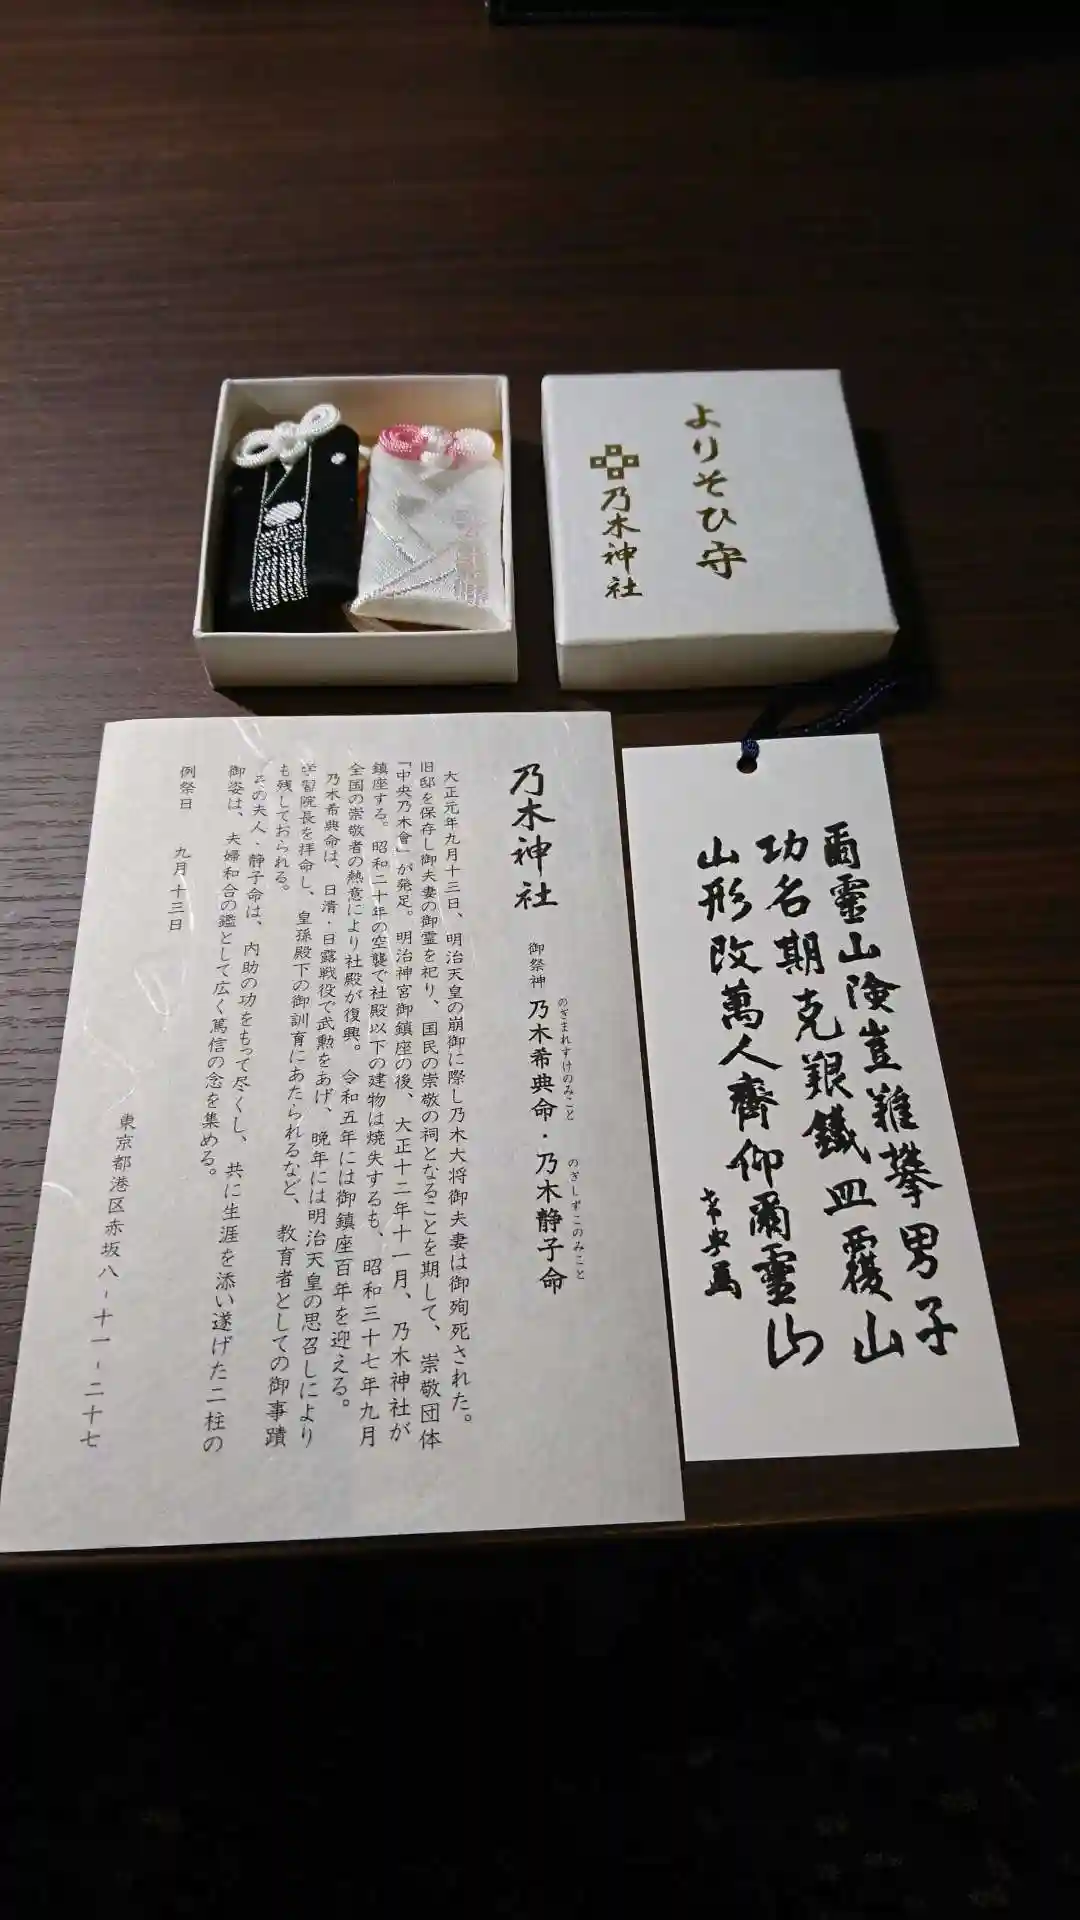 よりそひ守
乃木神社
乃木神社
御祭神
乃木希典命・乃木静子命
のぎまれすけのみこと
のぎしずこのみこと
大正元年九月十三日、明治天皇の崩御に際し乃木大将御夫妻は御殉死された。
旧邸を保存し御夫妻の御霊を祀り、国民の崇敬の祠となることを期して、崇敬団体
「中央乃木會」が発足。明治神宮御鎮座の後、大正十二年十一月、乃木神社が
鎮座する。昭和二十年の空襲で社殿以下の建物は焼失するも、昭和三十七年九月
全国の崇敬者の熱意により社殿が復興。令和五年には御鎮座百年を迎える。
乃木希典命は、日清・日露戦役で武勲をあげ、晩年には明治天皇の思召しにより
学習院長を拝命し、皇孫殿下の御訓育にあたられるなど、教育者としての御事蹟
も残しておられる。
その夫人・静子命は、内助の功をもって尽くし、共に生涯を添い遂げた二柱の
御姿は、夫婦和合の鑑として広く篤信の念を集める。
例祭日 九月十三日
東京都港区赤坂八-十一-二十七
爾靈山険豈難攀男子
功名期克艱鐵血覆山
山形改萬人齊仰爾靈山